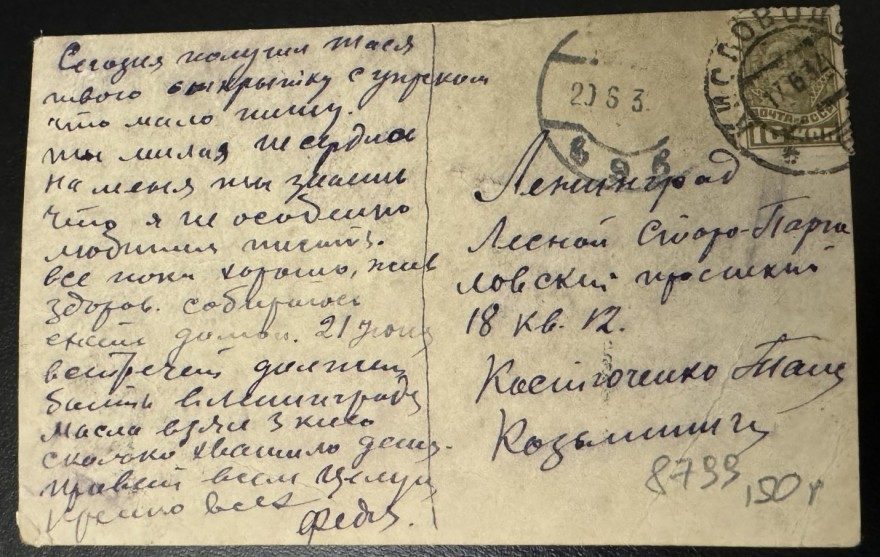 Сегодня получил Тася
твою открытку с упреком
что мало пишу.
ты милая не сердись
на меня ты знаешь
что я не особенно
любитель писать.
все пока хорошо, жив
здоров. собираюсь
ехать домой. 21 июня
встречай должен
быть в Ленинграде
масла взял 3 кило
сколько хватило ден.
привет всем целую
крепко всех
Федя.
КИСЛОВОДСК
17.6.34
ПОЧТА
20 6 3
Ленинград
Лесной Старо-Парго
ловский проспект
18 кв. 12.
Костюченко Таис
Козьминичне
8799
150 р